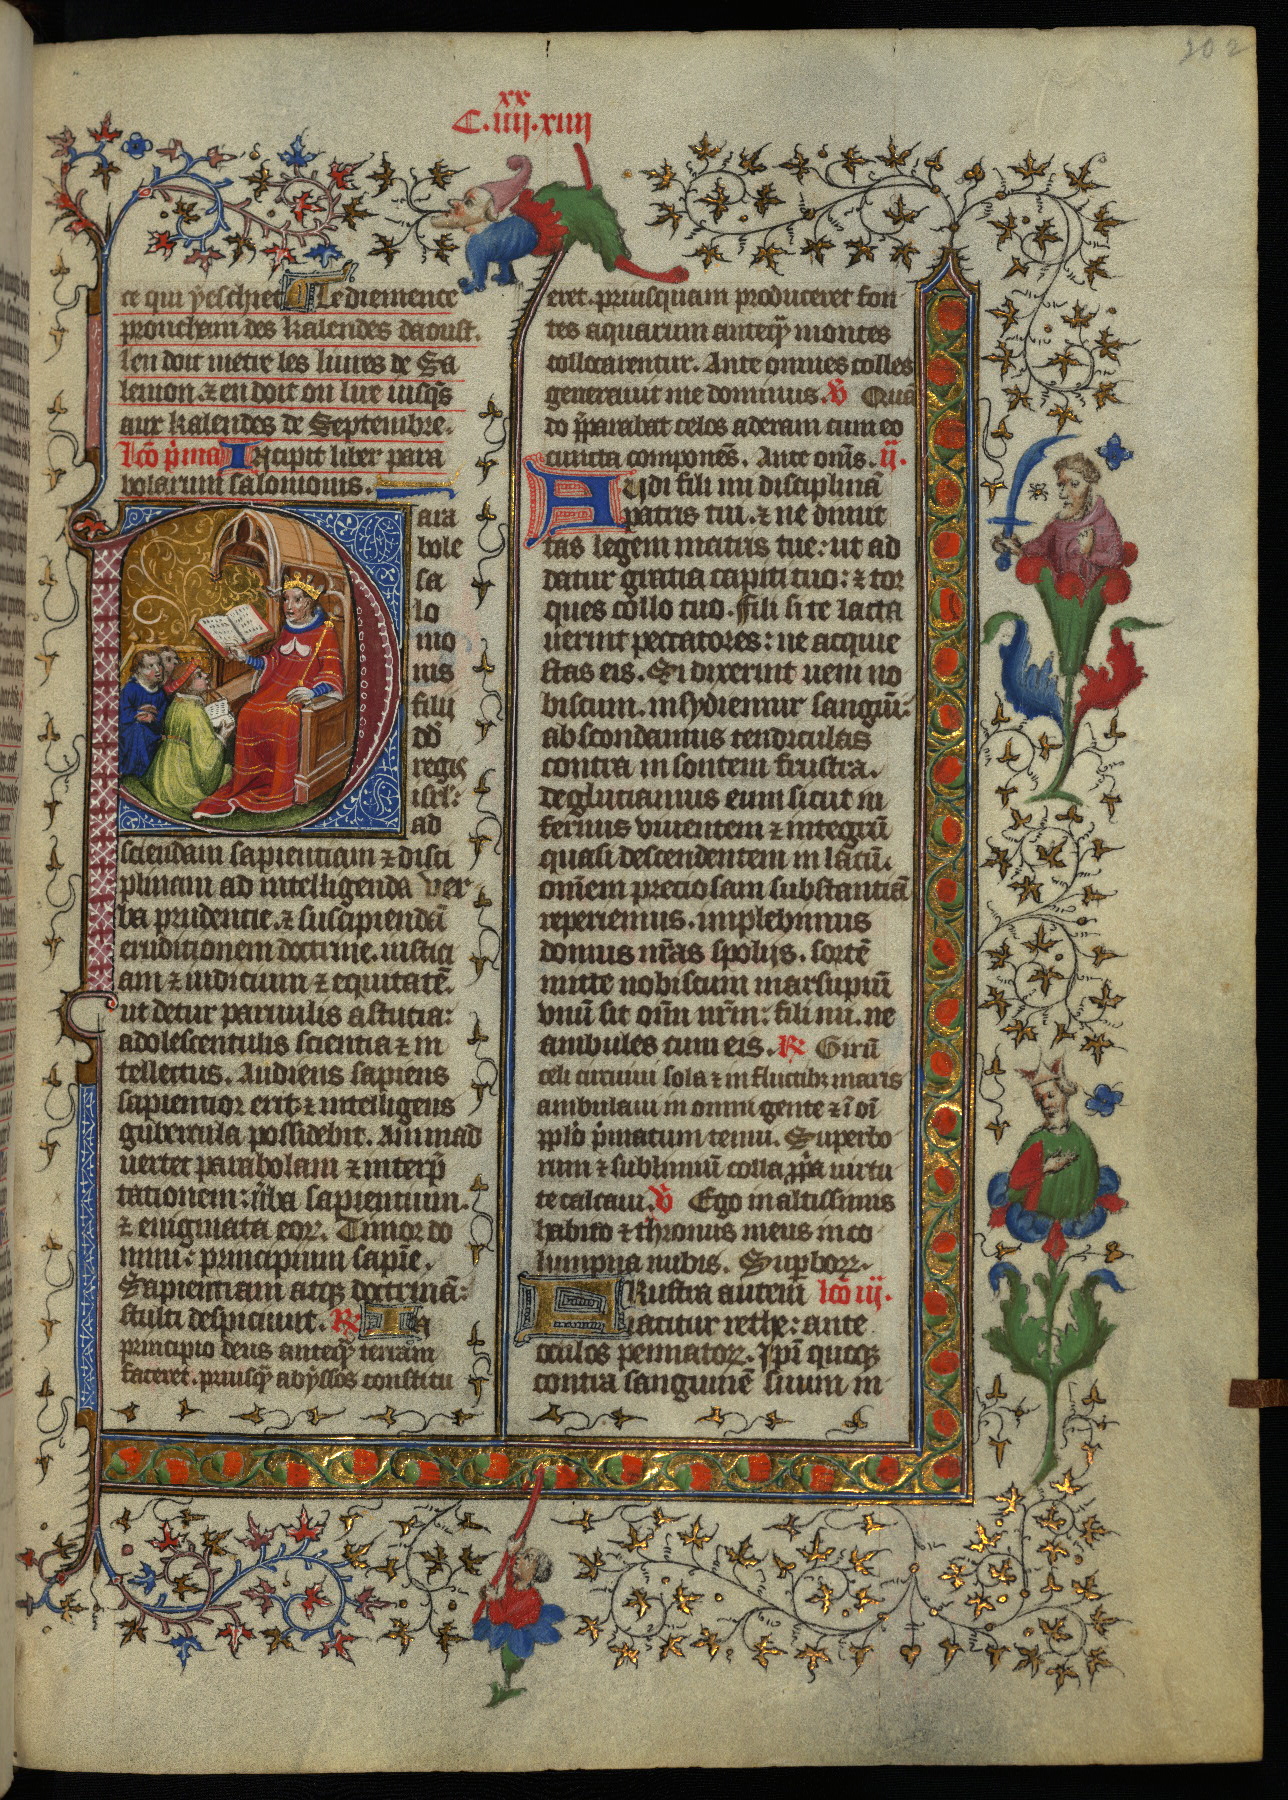 202
xx
C.iiij.xiiij
ce qui y eschiet Le diemence
prouchain des kalendes daoust.
len doit metre les liures de Sa
lemon. ⁊ en doit on lire iusq̃s
aux kalendes de Septembre.
Lc̃o p̃ma Incipit liber para
bolarum salomonis.
Para
bole
sa
lo
mo
nis
filij
dd̃
regis
isrl̃:
ad
sciendam sapientiam ⁊ disci
plinam ad intelligenda ver
ba prudentie. ⁊ suscipiendã
eruditionem doctrine. iusticі
am ⁊ iudicium ⁊ equitatẽ.
ut detur paruulis astucia:
adolescentulis scientia ⁊ in
tellectus. Audiens sapiens
sapientior erit: ⁊ intelligens
gubernacula possidebit. Animad
uertet parabolam ⁊ interp̃
tationem: ũba sapientium.
⁊ enigmata eoꝝ. Timor do
mini: principium sapiẽ.
Sapientiam atqꝫ doctrinã:
stulti despiciunt. ℟ In
principio deus anteqꝫ terram
faceret. priusqꝫ abyssos constitu
eret. priusquam produceret fon
tes aquarum anteqꝫ montes
collocarentur. Ante omnes colles
generauit me dominus. ℣ Quã
do p̃parabat celos aderam cum eo
cuncta componẽs. Ante om̃s. ij.
Audi fili mi disciplinã
patris tui. ⁊ ne dimit
tas legem matris tue: ut ad
datur gratia capiti tuo: ⁊ tor
ques collo tuo. Fili si te lacta
uerint peccatores: ne acquie
scas eis. Si dixerint ueni no
biscum. insydiemur sanguĩ:
abscondamus tendiculas
contra insontem frustra.
deglutiamus eum sicut in
fernus viuentem ⁊ integrũ
quasi descendentem in lacũ.
om̃em preciosam substantiã
reperiemus. implebimus
domus nr̃as spolijs. sortẽ
mitte nobiscum marsupiũ
vnũ sit om̃m nr̃m: fili mi. ne
ambules cum eis. ℟ Girũ
celi circuiui sola ⁊ in fluctibꝫ maris
ambulaui in omni gente ⁊ ĩ oĩ
pplõ p̃matum tenui. Superbo
rum ⁊ sublimiũ colla ꝓp̃a uirtu
te calcaui. ℣ Ego in altissimis
habito ⁊ thronus meus in co
lumpna nubis. Supboꝝ.
Frustra autem̃ lc̃o iij.
iacitur rethe: ante
oculos pennatoꝝ. Ipĩ quoqꝫ
contra sanguinẽ suum in